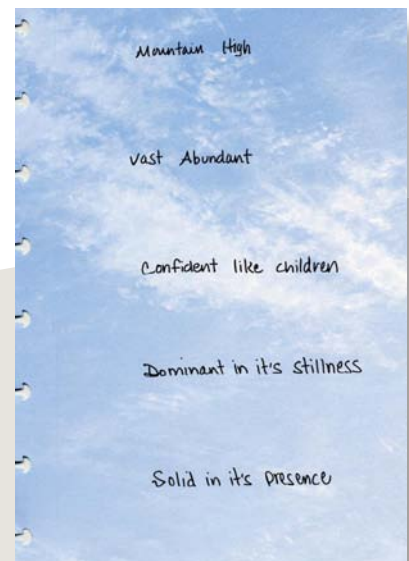 Mountain High
Vast Abundant
Confident like children
Dominant in it's stillness
Solid in it's presence